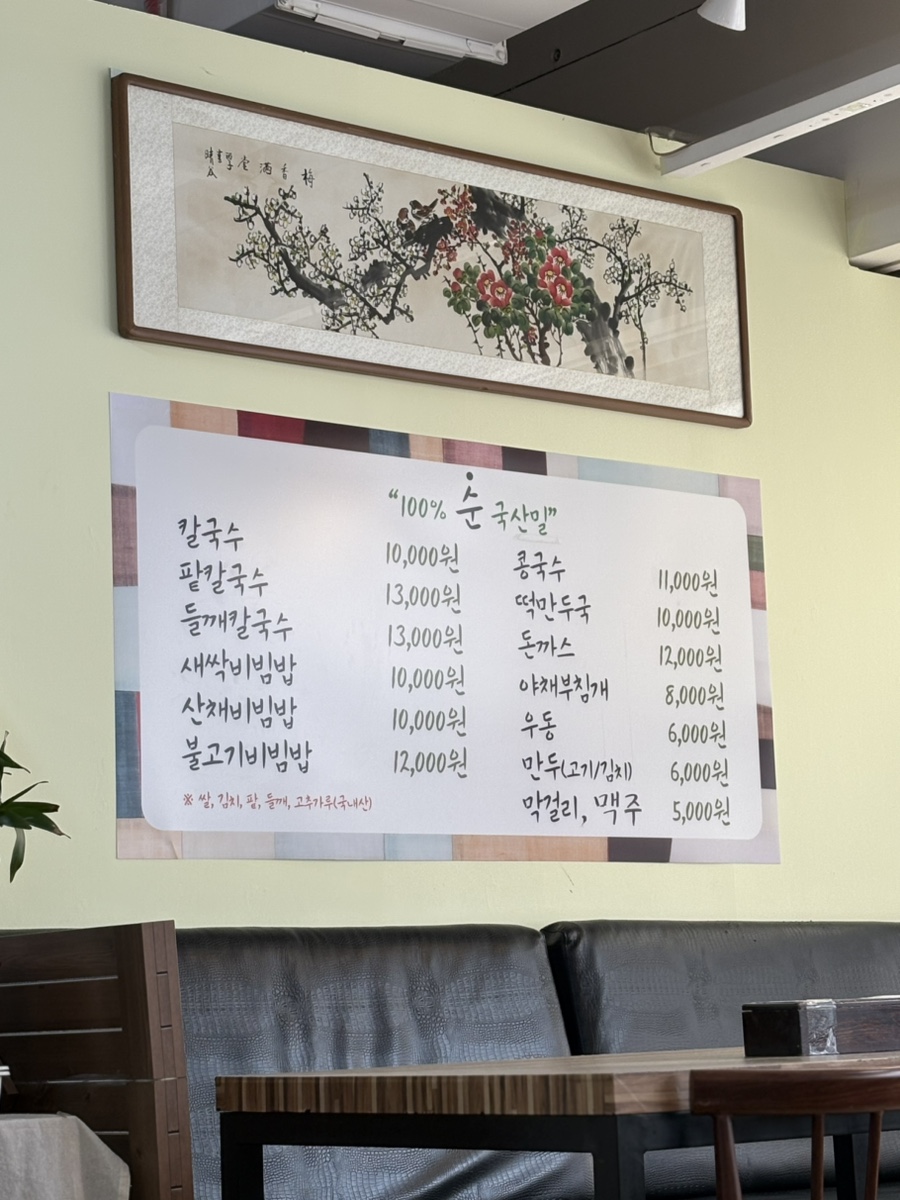 梅香酒壹翠書晴
“100% 순 국산밀”
칼국수 10,000원
팥칼국수 13,000원
들깨칼국수 13,000원
새싹비빔밥 10,000원
산채비빔밥 10,000원
불고기비빔밥 12,000원
※ 쌀, 김치, 팥, 들깨, 고추가루(국내산)
콩국수 11,000원
떡만두국 10,000원
돈까스 12,000원
야채부침개 8,000원
우동 6,000원
만두(고기/김치) 6,000원
막걸리, 맥주 5,000원